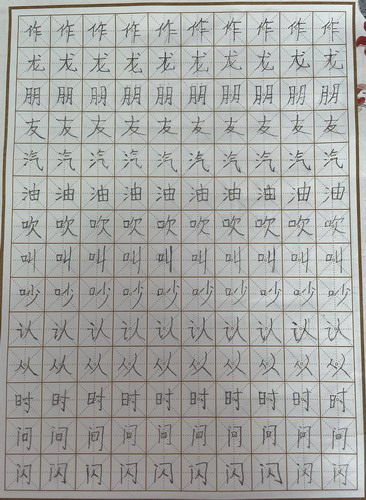 作作作作作作作作作作
龙龙龙龙龙龙龙龙龙龙
朋朋朋朋朋朋朋朋朋朋
友友友友友友友友友友
汽汽汽汽汽汽汽汽汽汽
油油油油油油油油油油
吹吹吹吹吹吹吹吹吹吹
叫叫叫叫叫叫叫叫叫叫
吵吵吵吵吵吵吵吵吵吵
认认认认认认认认认认
从从从从从从从从从从
时时时时时时时时时时
问问问问问问问问问问
闪闪闪闪闪闪闪闪闪闪